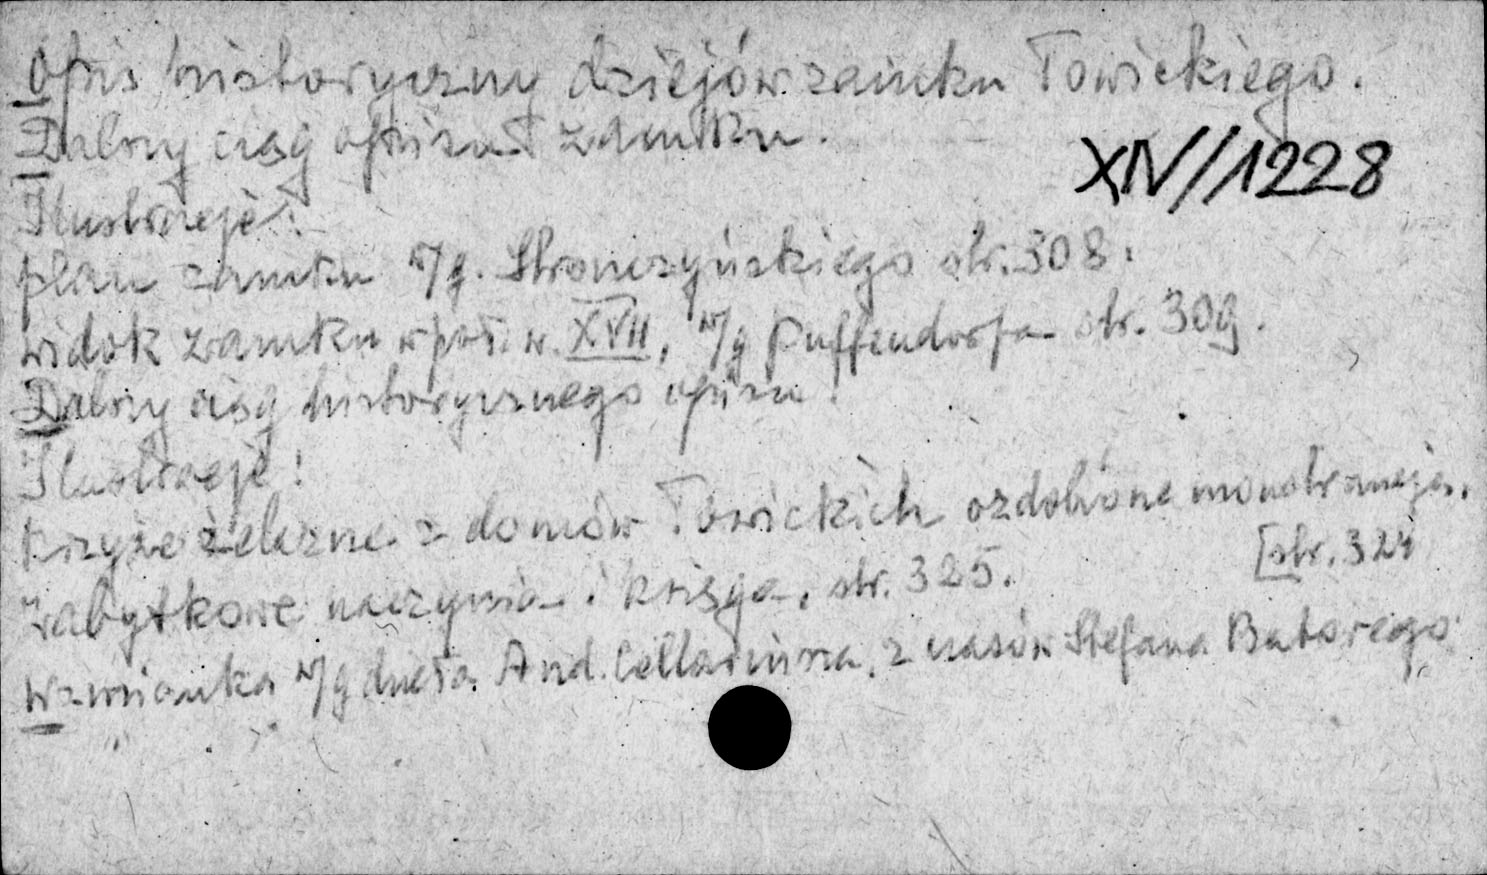 Opis historyczny dziejów zamku Łowickiego.
Dalszy ciąg opisu zamku.
XIV//1228
Ilustracje:
plan zamku w/g. Stronczyńskiego str. 308.
widok zamku w poł. w. XVII, w/g Puffendorfa str. 309.
Dalszy ciąg historycznego opisu!
Ilustracje!
Krzyże żelazne z domów Łowickich ozdobione monstrancją.
[str. 324
zabytkowe naczynia i księga, str. 325.
Wzmianka w/g dzieła And. Cellariusza, z czasów Stefana Batorego